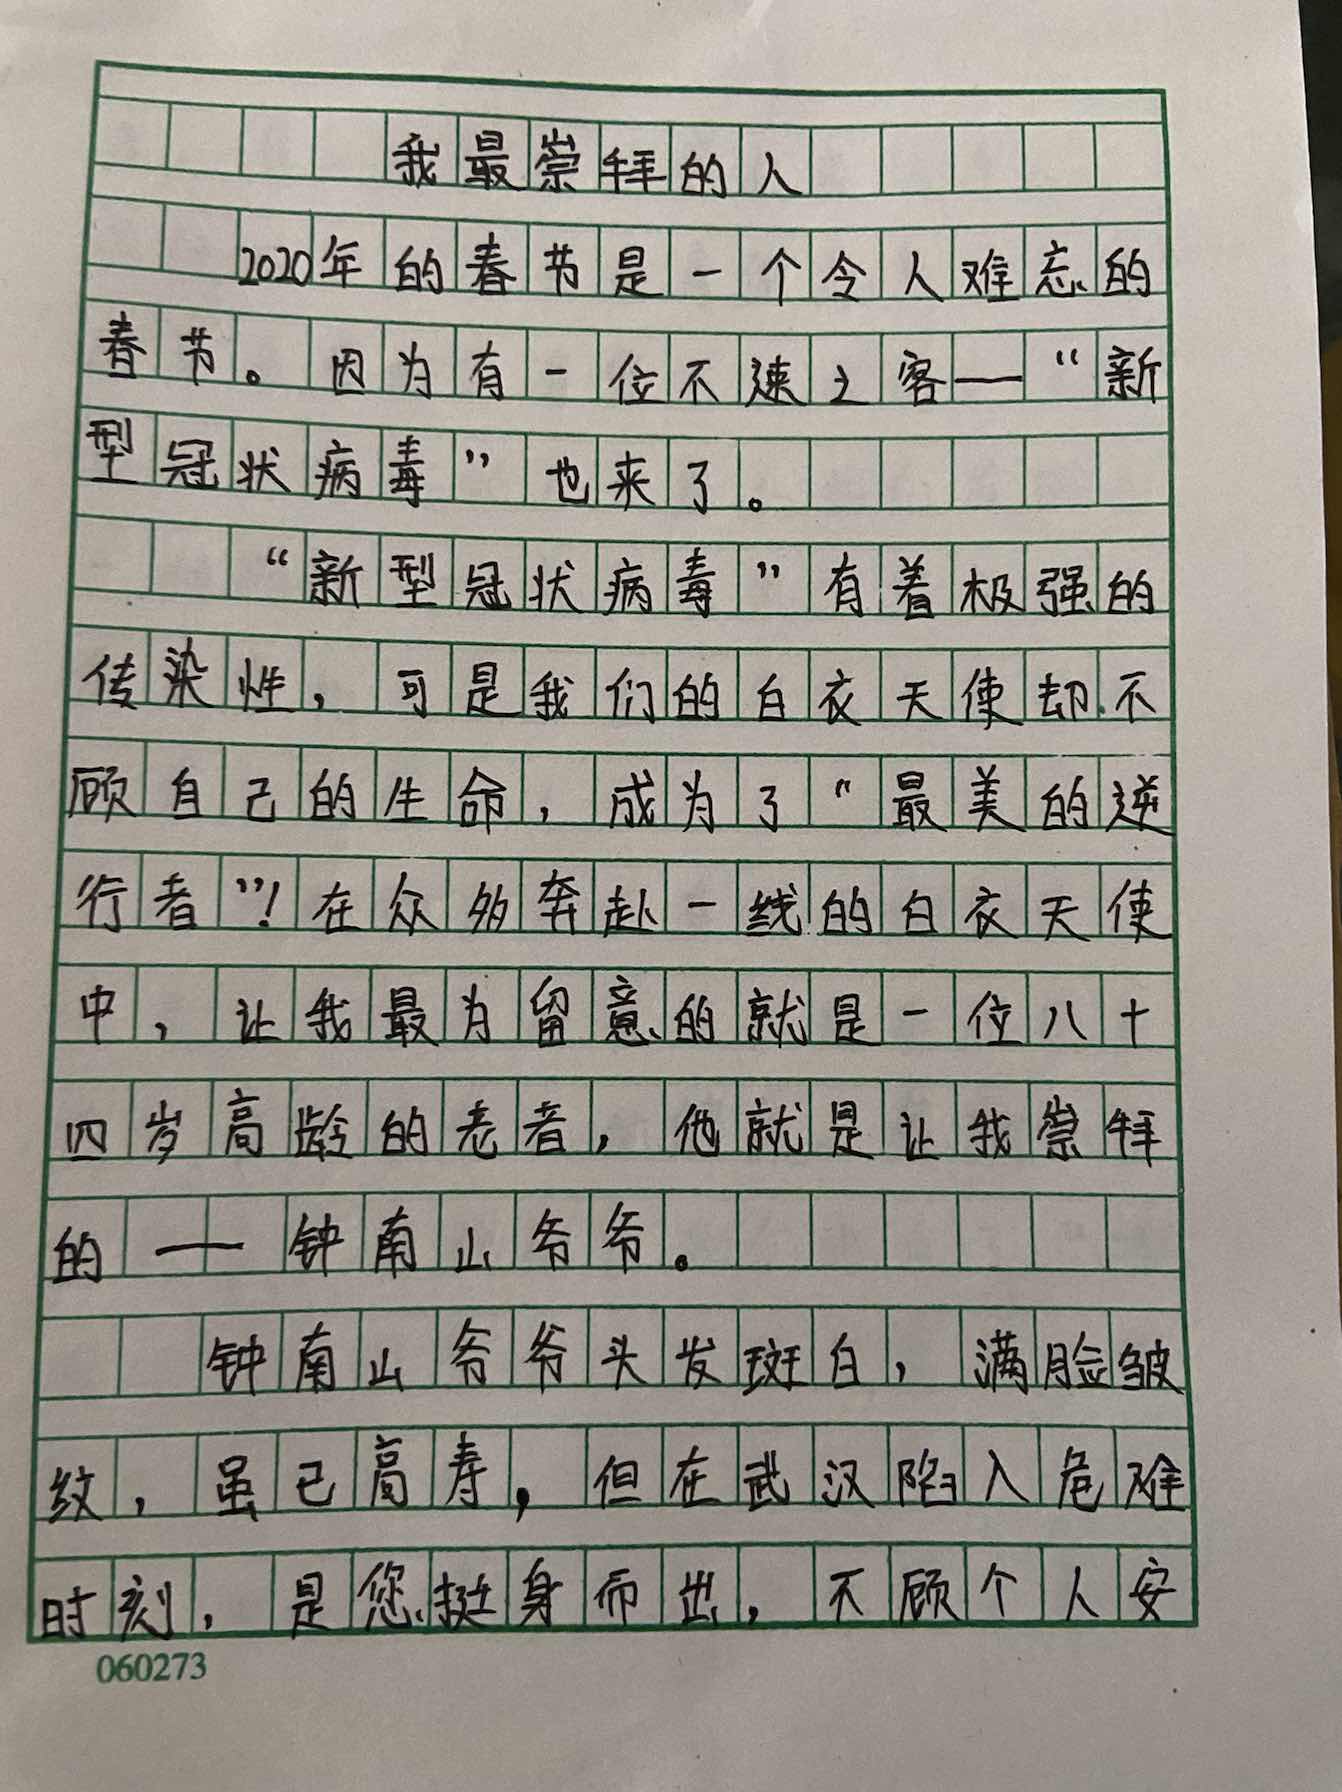 我最崇拜的人
2020年的春节是一个令人难忘的
春节。因为有一位不速之客——“新
型冠状病毒”也来了。
“新型冠状病毒”有着极强的
传染性，可是我们的白衣天使却不
顾自己的生命，成为了“最美的逆
行者”！在众多奔赴一线的白衣天使
中，让我最为留意的就是一位八十
四岁高龄的老者，他就是让我崇拜
的——钟南山爷爷。
钟南山爷爷头发斑白，满脸皱
纹，虽已高寿，但在武汉陷入危难
时刻，是您挺身而出，不顾个人安
060273